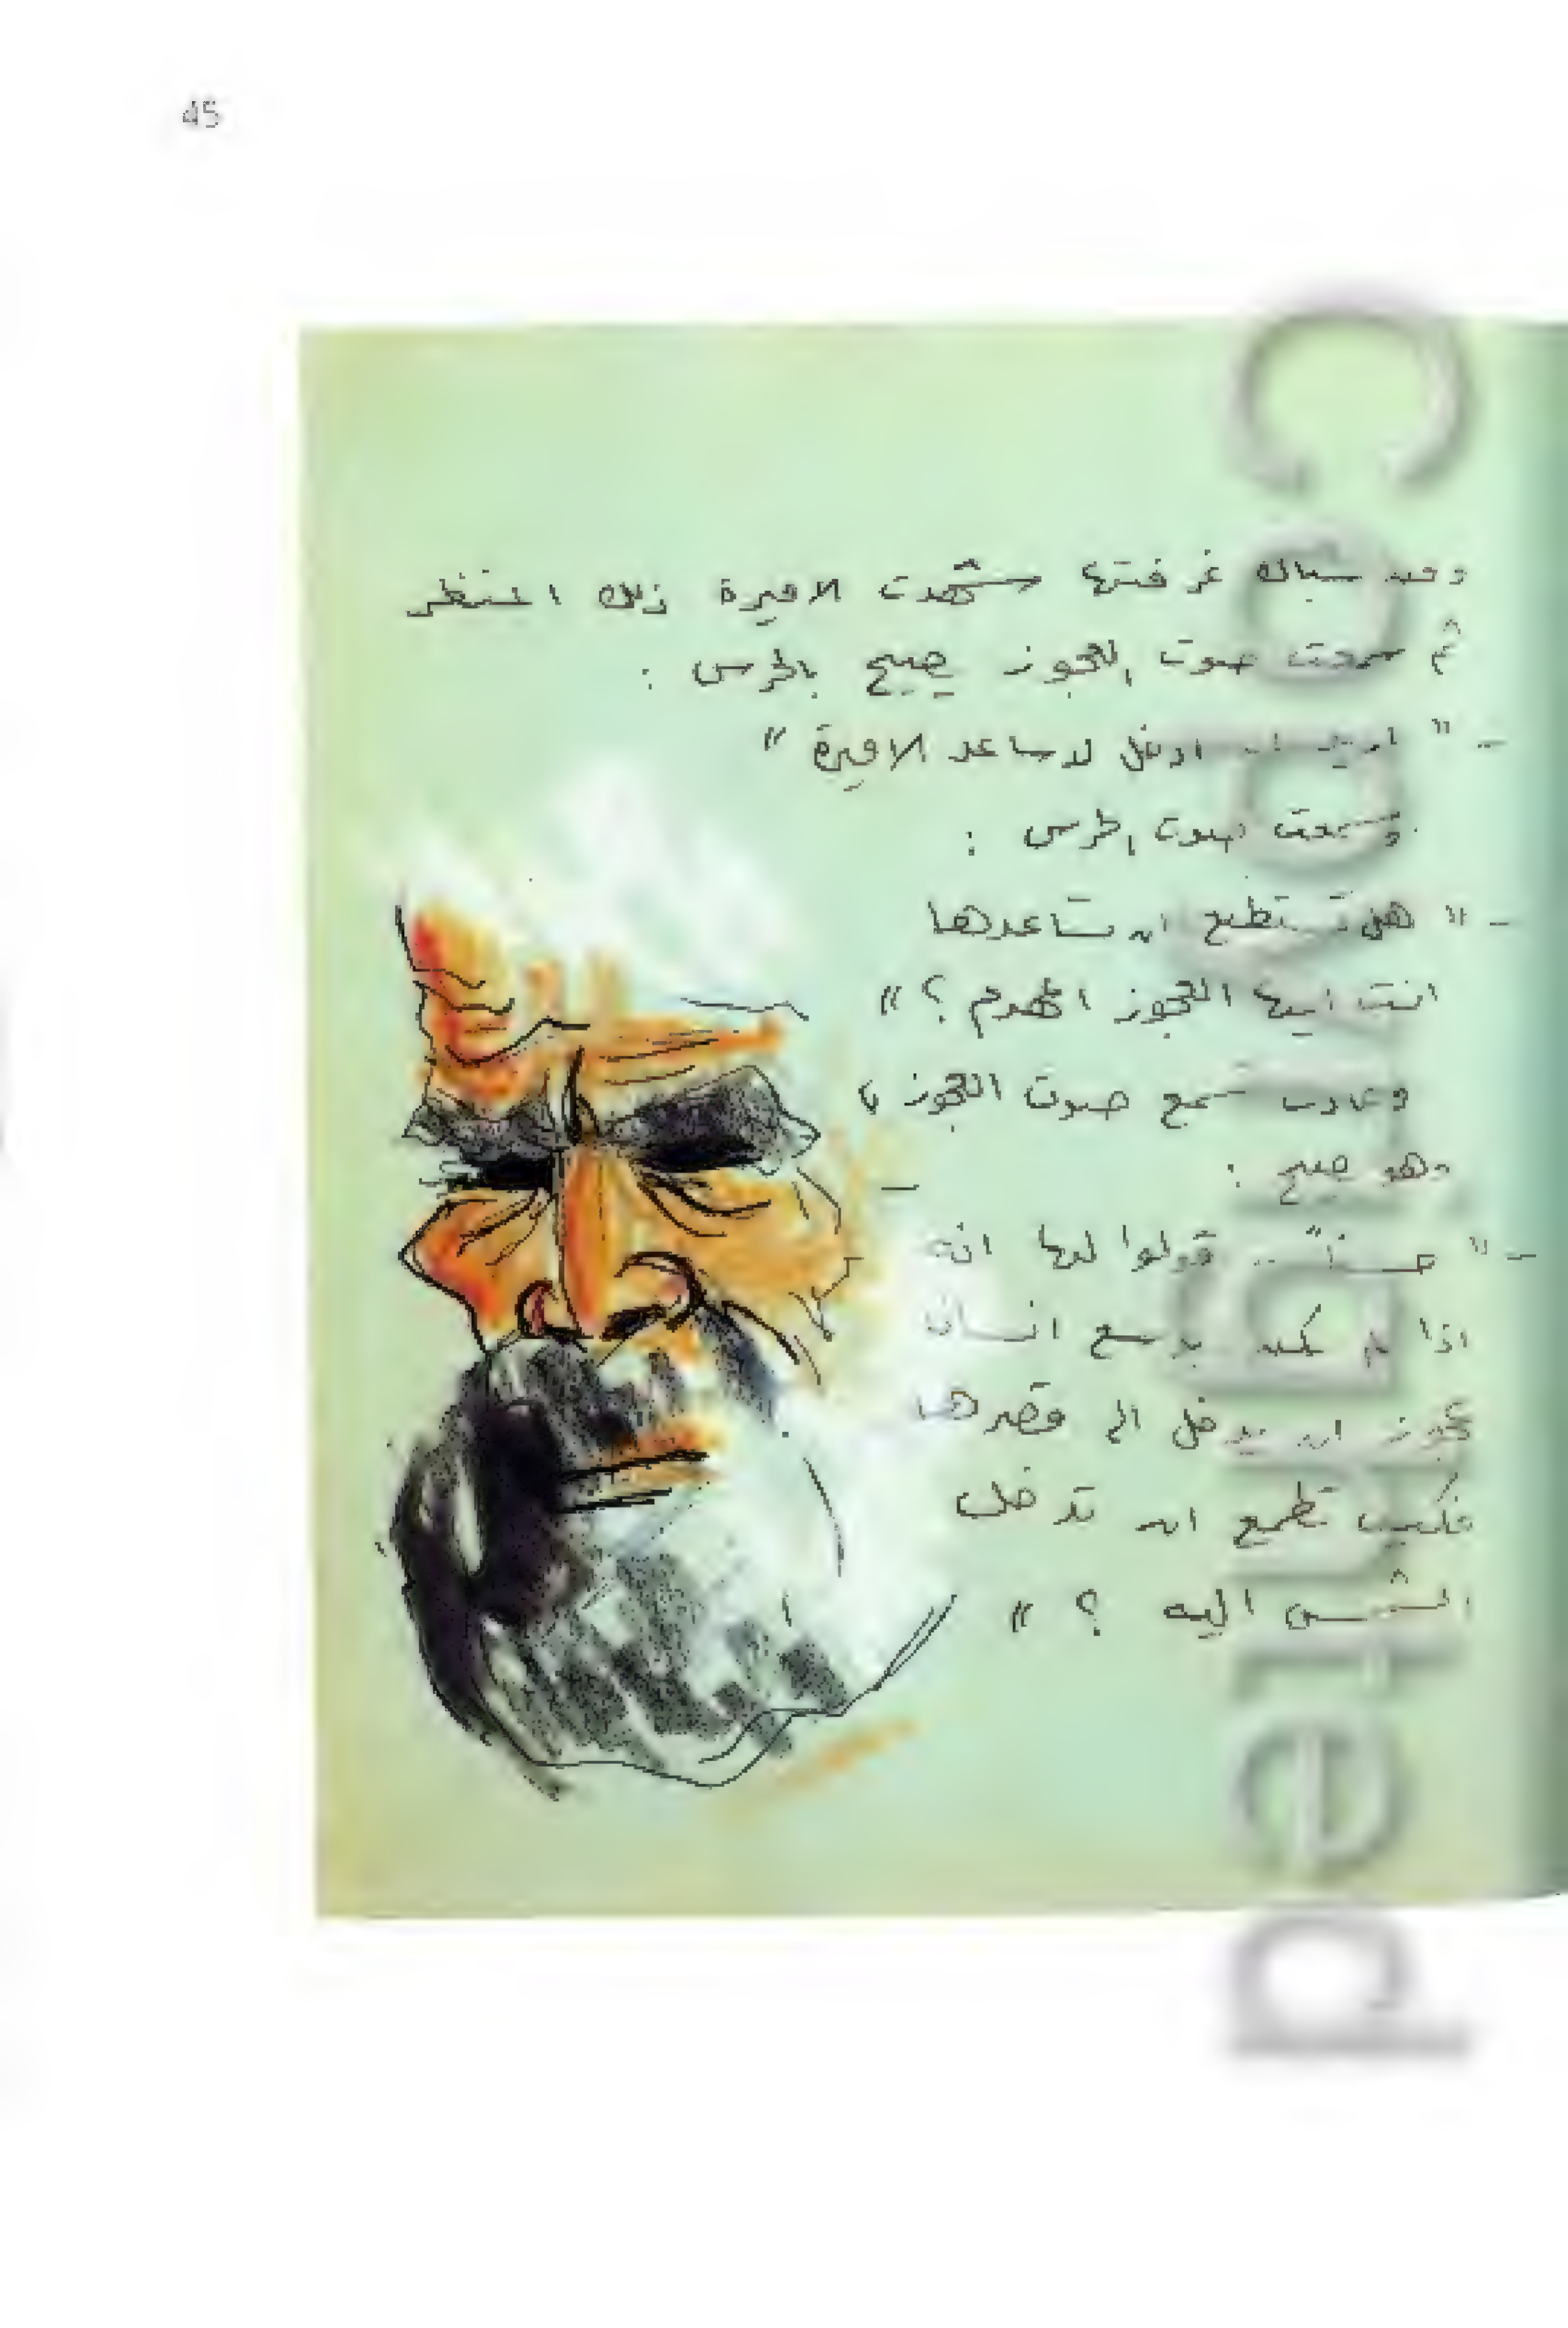 45
ومن شباك غرفتها شهدت الاميرة ذلك المنظر
ثم سمعت صوت العجوز يصيح بالحرس :
- " اريد ان ادخل لاساعد الاميرة "
وسمعت صوت الحرس :
- " هل تستطيع ان تساعدها
انت ايها العجوز الهرم ؟ "
وعادت تسمع صوت العجوز
وهو يصيح :
- " حسناً .. قولوا لها انه
اذا لم يكن بوسع انسان
عجوز ان يدخل الى قصرها
فكيف تطمع ان تدخل
الشمس اليه ؟ "
Copyrighted